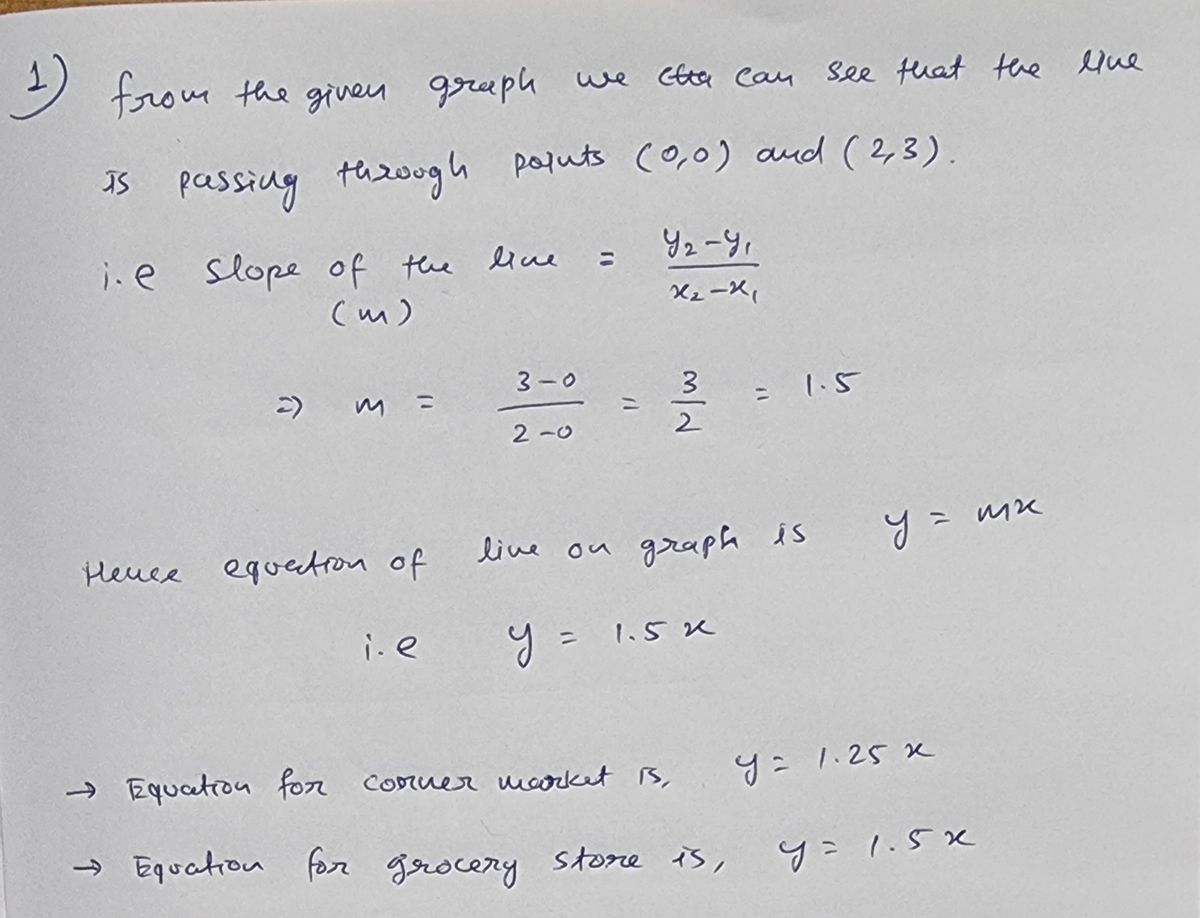 1) from the given graph we can see that the line
is passing through points (0,0) and (2,3).
i.e slope of the line = y₂-y₁ / x₂-x₁
(m)
⇒ m = 3-0 / 2-0 = 3/2 = 1.5
Hence equation of line on graph is y = mx
i.e y = 1.5 x
→ Equation for corner market is, y = 1.25 x
→ Equation for grocery store is, y = 1.5 x